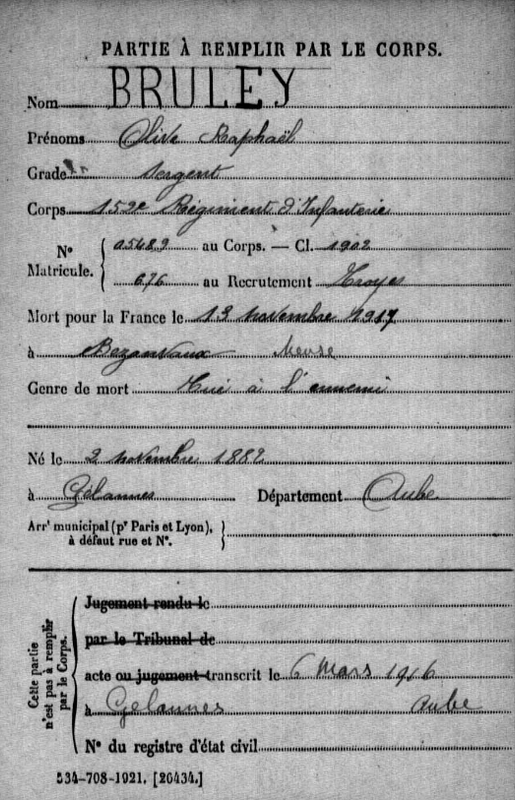 PARTIE À REMPLIR PAR LE CORPS.
Nom BRULEY
Prénoms Olive Raphaël
Grade Sergent
Corps 152e Régiment d'Infanterie
N° Matricule. 05489 au Corps. — Cl. 1902
676 au Recrutement Troyes
Mort pour la France le 13 novembre 1917
à Bezonvaux Meuse
Genre de mort Tué à l'ennemi
Né le 2 novembre 1882
à Gélannes Département Aube
Arrt municipal (pr Paris et Lyon), à défaut rue et N°.
Cette partie n'est pas à remplir par le Corps.
Jugement rendu le
par le Tribunal de
acte ou jugement transcrit le 6 Mars 1916
à Gelannes Aube
N° du registre d'état civil
534-708-1921. [26434.]